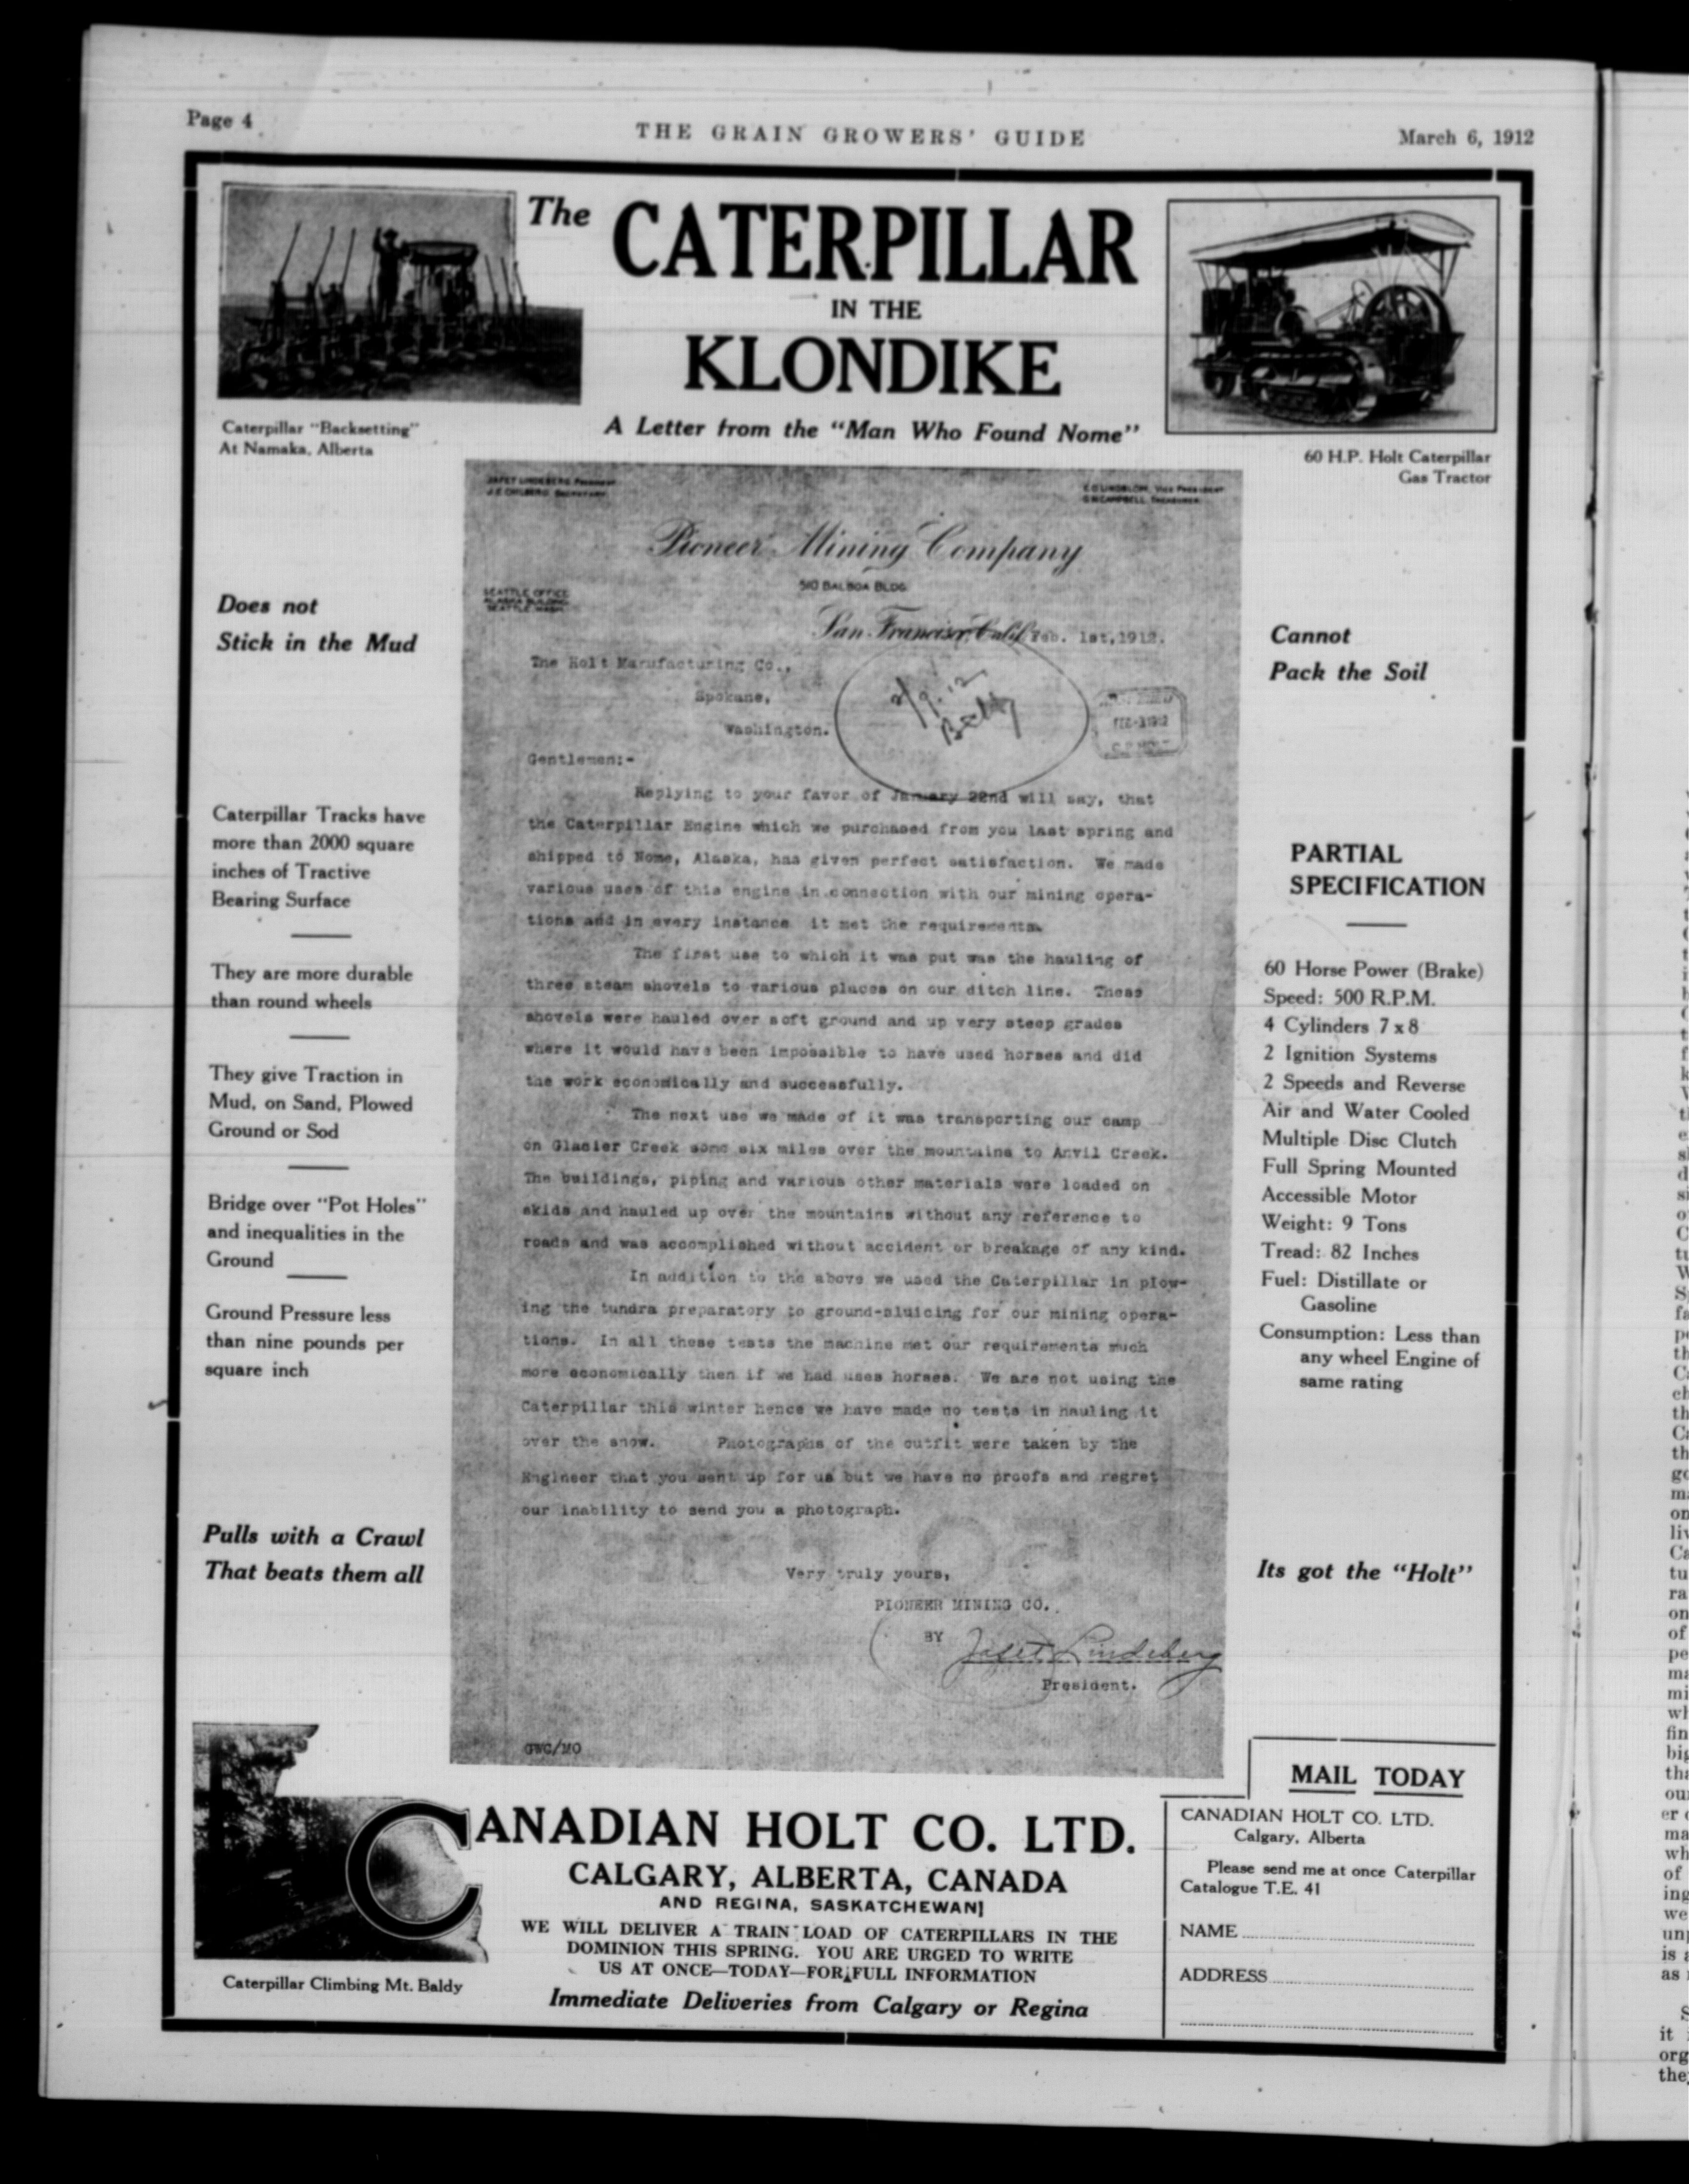 Page 4
THE GRAIN GROWERS' GUIDE
March 6, 1912
The CATERPILLAR
IN THE
KLONDIKE
A Letter from the "Man Who Found Nome"
Caterpillar "Backsetting"
At Namaka, Alberta
60 H.P. Holt Caterpillar
Gas Tractor
Does not
Stick in the Mud
Caterpillar Tracks have
more than 2000 square
inches of Tractive
Bearing Surface
They are more durable
than round wheels
They give Traction in
Mud, on Sand, Plowed
Ground or Sod
Bridge over "Pot Holes"
and inequalities in the
Ground
Ground Pressure less
than nine pounds per
square inch
Pulls with a Crawl
That beats them all
JAFET LINDEBERG President
J.E. CHILBERG Secretary
E.O. LINDBLOM, Vice President
G.W. CAMPBELL, Treasurer
Pioneer Mining Company
510 BALBOA BLDG
SEATTLE OFFICE
ALASKA BUILDING
SEATTLE, WASH.
San Francisco, Calif. Feb. 1st, 1912.
The Holt Manufacturing Co.,
Spokane,
Washington.
Gentlemen:-
Replying to your favor of January 22nd will say, that
the Caterpillar Engine which we purchased from you last spring and
shipped to Nome, Alaska, has given perfect satisfaction. We made
various uses of this engine in connection with our mining opera-
tions and in every instance it met the requirements.
The first use to which it was put was the hauling of
three steam shovels to various places on our ditch line. These
shovels were hauled over soft ground and up very steep grades
where it would have been impossible to have used horses and did
the work economically and successfully.
The next use we made of it was transporting our camp
on Glacier Creek some six miles over the mountains to Anvil Creek.
The buildings, piping and various other materials were loaded on
skids and hauled up over the mountains without any reference to
roads and was accomplished without accident or breakage of any kind.
In addition to the above we used the Caterpillar in plow-
ing the tundra preparatory to ground-sluicing for our mining opera-
tions. In all these tests the machine met our requirements much
more economically then if we had uses horses. We are not using the
Caterpillar this winter hence we have made no tests in hauling it
over the snow. Photographs of the outfit were taken by the
Engineer that you sent up for us but we have no proofs and regret
our inability to send you a photograph.
Very truly yours,
PIONEER MINING CO.
BY Jafet Lindeberg
President.
GWC/MO
Cannot
Pack the Soil
PARTIAL
SPECIFICATION
60 Horse Power (Brake)
Speed: 500 R.P.M.
4 Cylinders 7 x 8
2 Ignition Systems
2 Speeds and Reverse
Air and Water Cooled
Multiple Disc Clutch
Full Spring Mounted
Accessible Motor
Weight: 9 Tons
Tread: 82 Inches
Fuel: Distillate or
Gasoline
Consumption: Less than
any wheel Engine of
same rating
Its got the "Holt"
Caterpillar Climbing Mt. Baldy
CANADIAN HOLT CO. LTD.
CALGARY, ALBERTA, CANADA
AND REGINA, SASKATCHEWAN
WE WILL DELIVER A TRAIN LOAD OF CATERPILLARS IN THE
DOMINION THIS SPRING. YOU ARE URGED TO WRITE
US AT ONCE—TODAY—FOR FULL INFORMATION
Immediate Deliveries from Calgary or Regina
MAIL TODAY
CANADIAN HOLT CO. LTD.
Calgary, Alberta
Please send me at once Caterpillar
Catalogue T.E. 41
NAME
ADDRESS